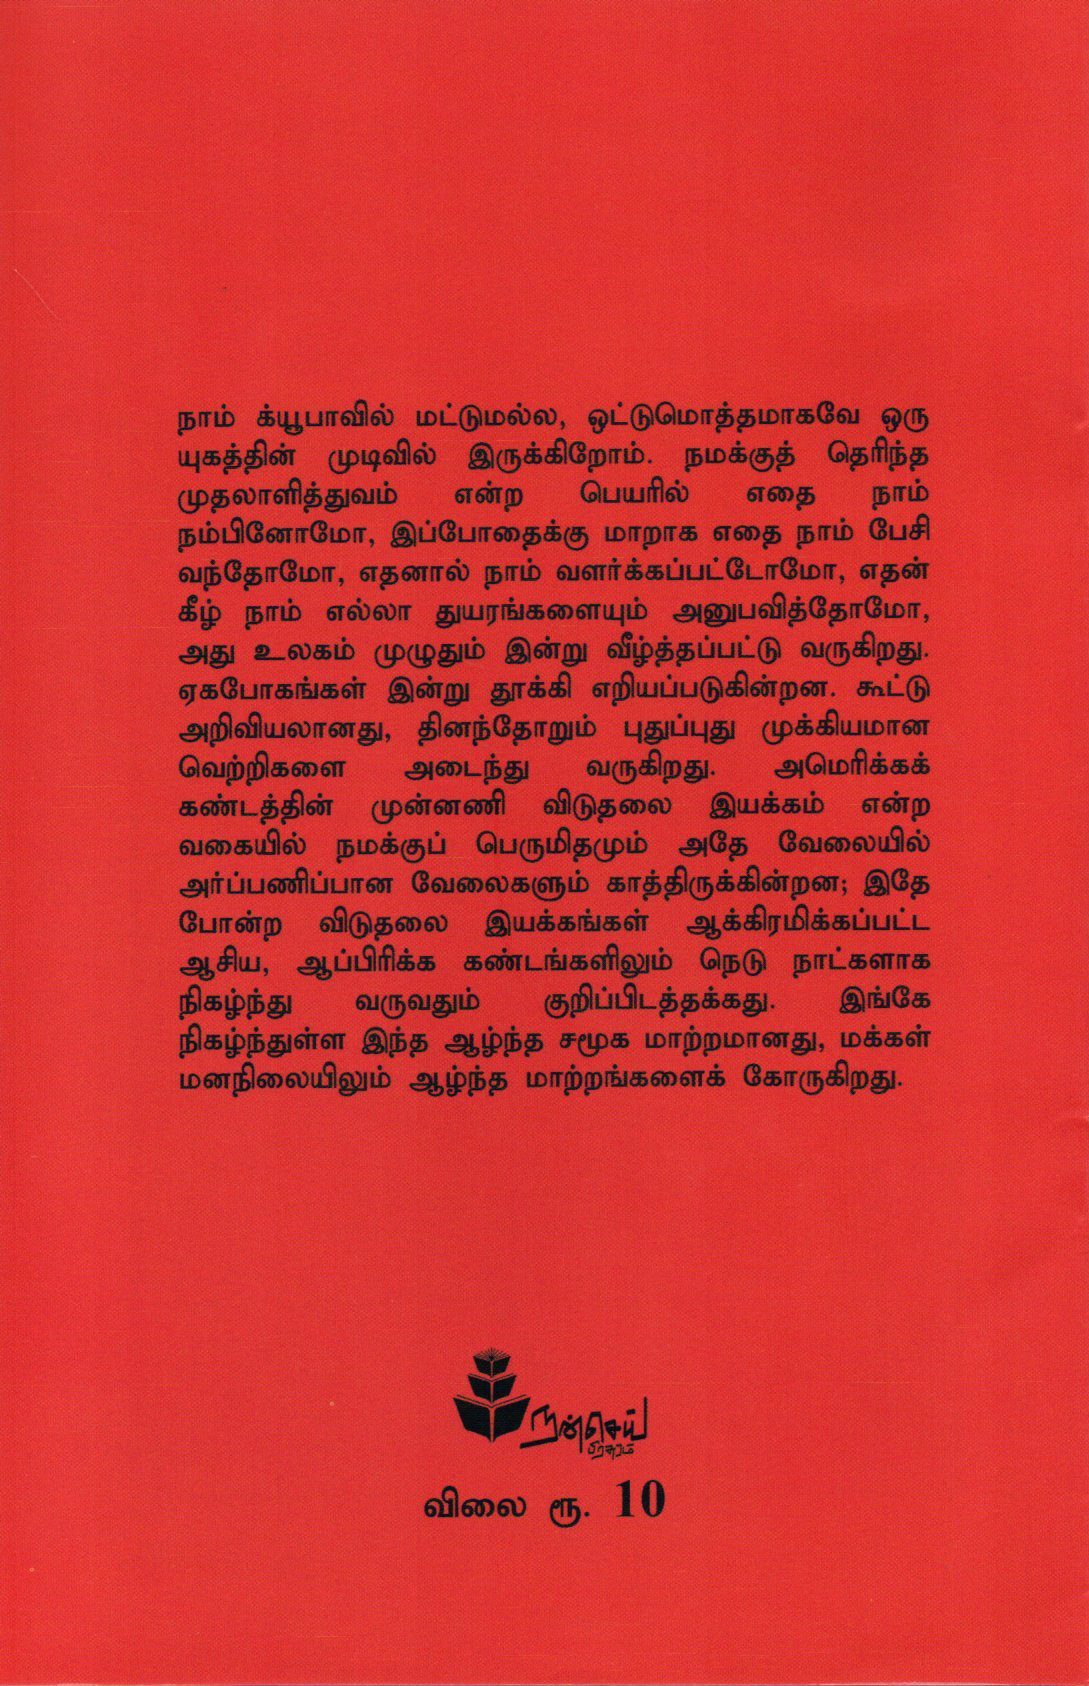 நாம் க்யூபாவில் மட்டுமல்ல, ஒட்டுமொத்தமாகவே ஒரு
யுகத்தின் முடிவில் இருக்கிறோம். நமக்குத் தெரிந்த
முதலாளித்துவம் என்ற பெயரில் எதை நாம்
நம்பினோமோ, இப்போதைக்கு மாறாக எதை நாம் பேசி
வந்தோமோ, எதனால் நாம் வளர்க்கப்பட்டோமோ, எதன்
கீழ் நாம் எல்லா துயரங்களையும் அனுபவித்தோமோ,
அது உலகம் முழுதும் இன்று வீழ்த்தப்பட்டு வருகிறது.
ஏகபோகங்கள் இன்று தூக்கி எறியப்படுகின்றன. கூட்டு
அறிவியலானது, தினந்தோறும் புதுப்புது முக்கியமான
வெற்றிகளை அடைந்து வருகிறது. அமெரிக்கக்
கண்டத்தின் முன்னணி விடுதலை இயக்கம் என்ற
வகையில் நமக்குப் பெருமிதமும் அதே வேலையில்
அர்ப்பணிப்பான வேலைகளும் காத்திருக்கின்றன; இதே
போன்ற விடுதலை இயக்கங்கள் ஆக்கிரமிக்கப்பட்ட
ஆசிய, ஆப்பிரிக்க கண்டங்களிலும் நெடு நாட்களாக
நிகழ்ந்து வருவதும் குறிப்பிடத்தக்கது. இங்கே
நிகழ்ந்துள்ள இந்த ஆழ்ந்த சமூக மாற்றமானது, மக்கள்
மனநிலையிலும் ஆழ்ந்த மாற்றங்களைக் கோருகிறது.
நன்செய்
பிரசுரம்
விலை ரூ. 10